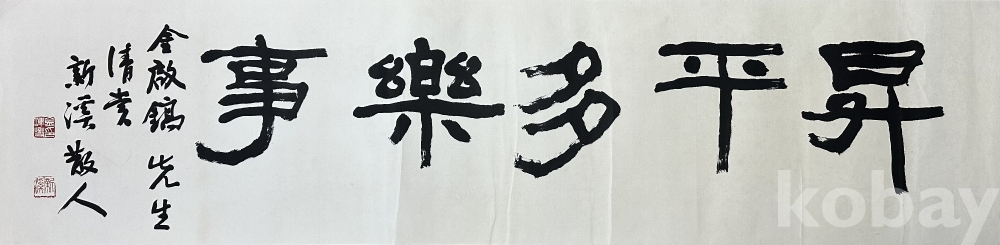 昇平多樂事
金啟鎬先生
清賞
新溪散人
kobay